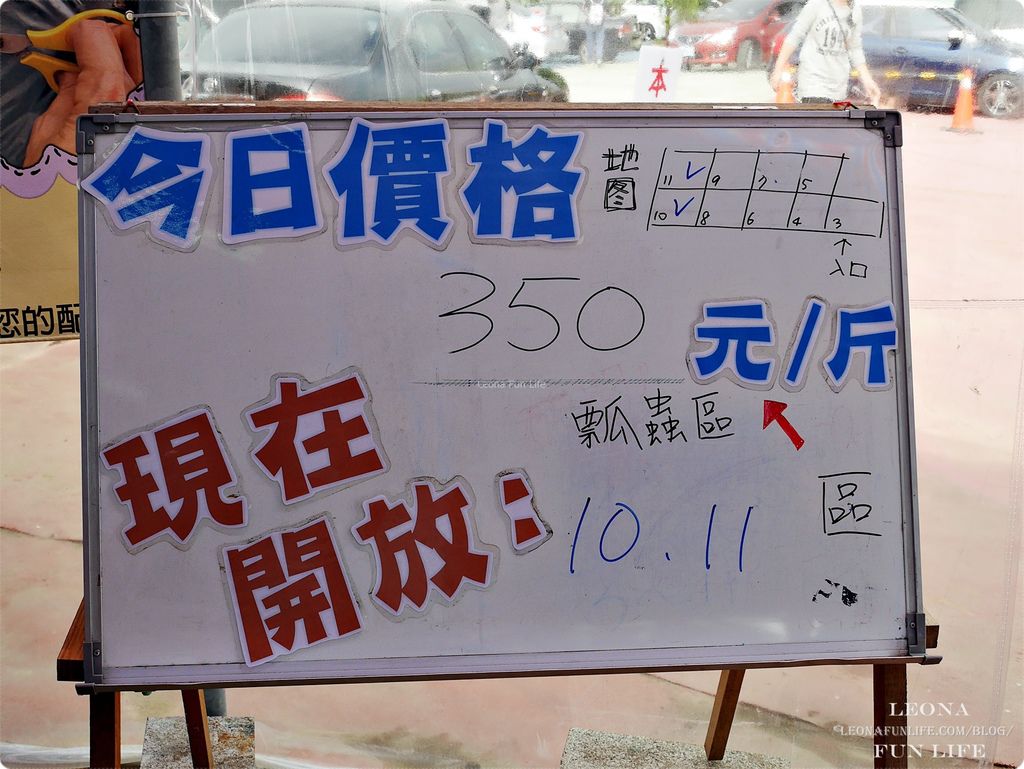 本
今日價格
地
图
11 9 7. 5
10 8 6 4 3
入口
350 元/斤
Leona Fun Life
瓢蟲區
現在
開放: 10.11 區
您的配
LEONA
©LEONAFUNLIFE.COM/BLOG/
FUN LIFE